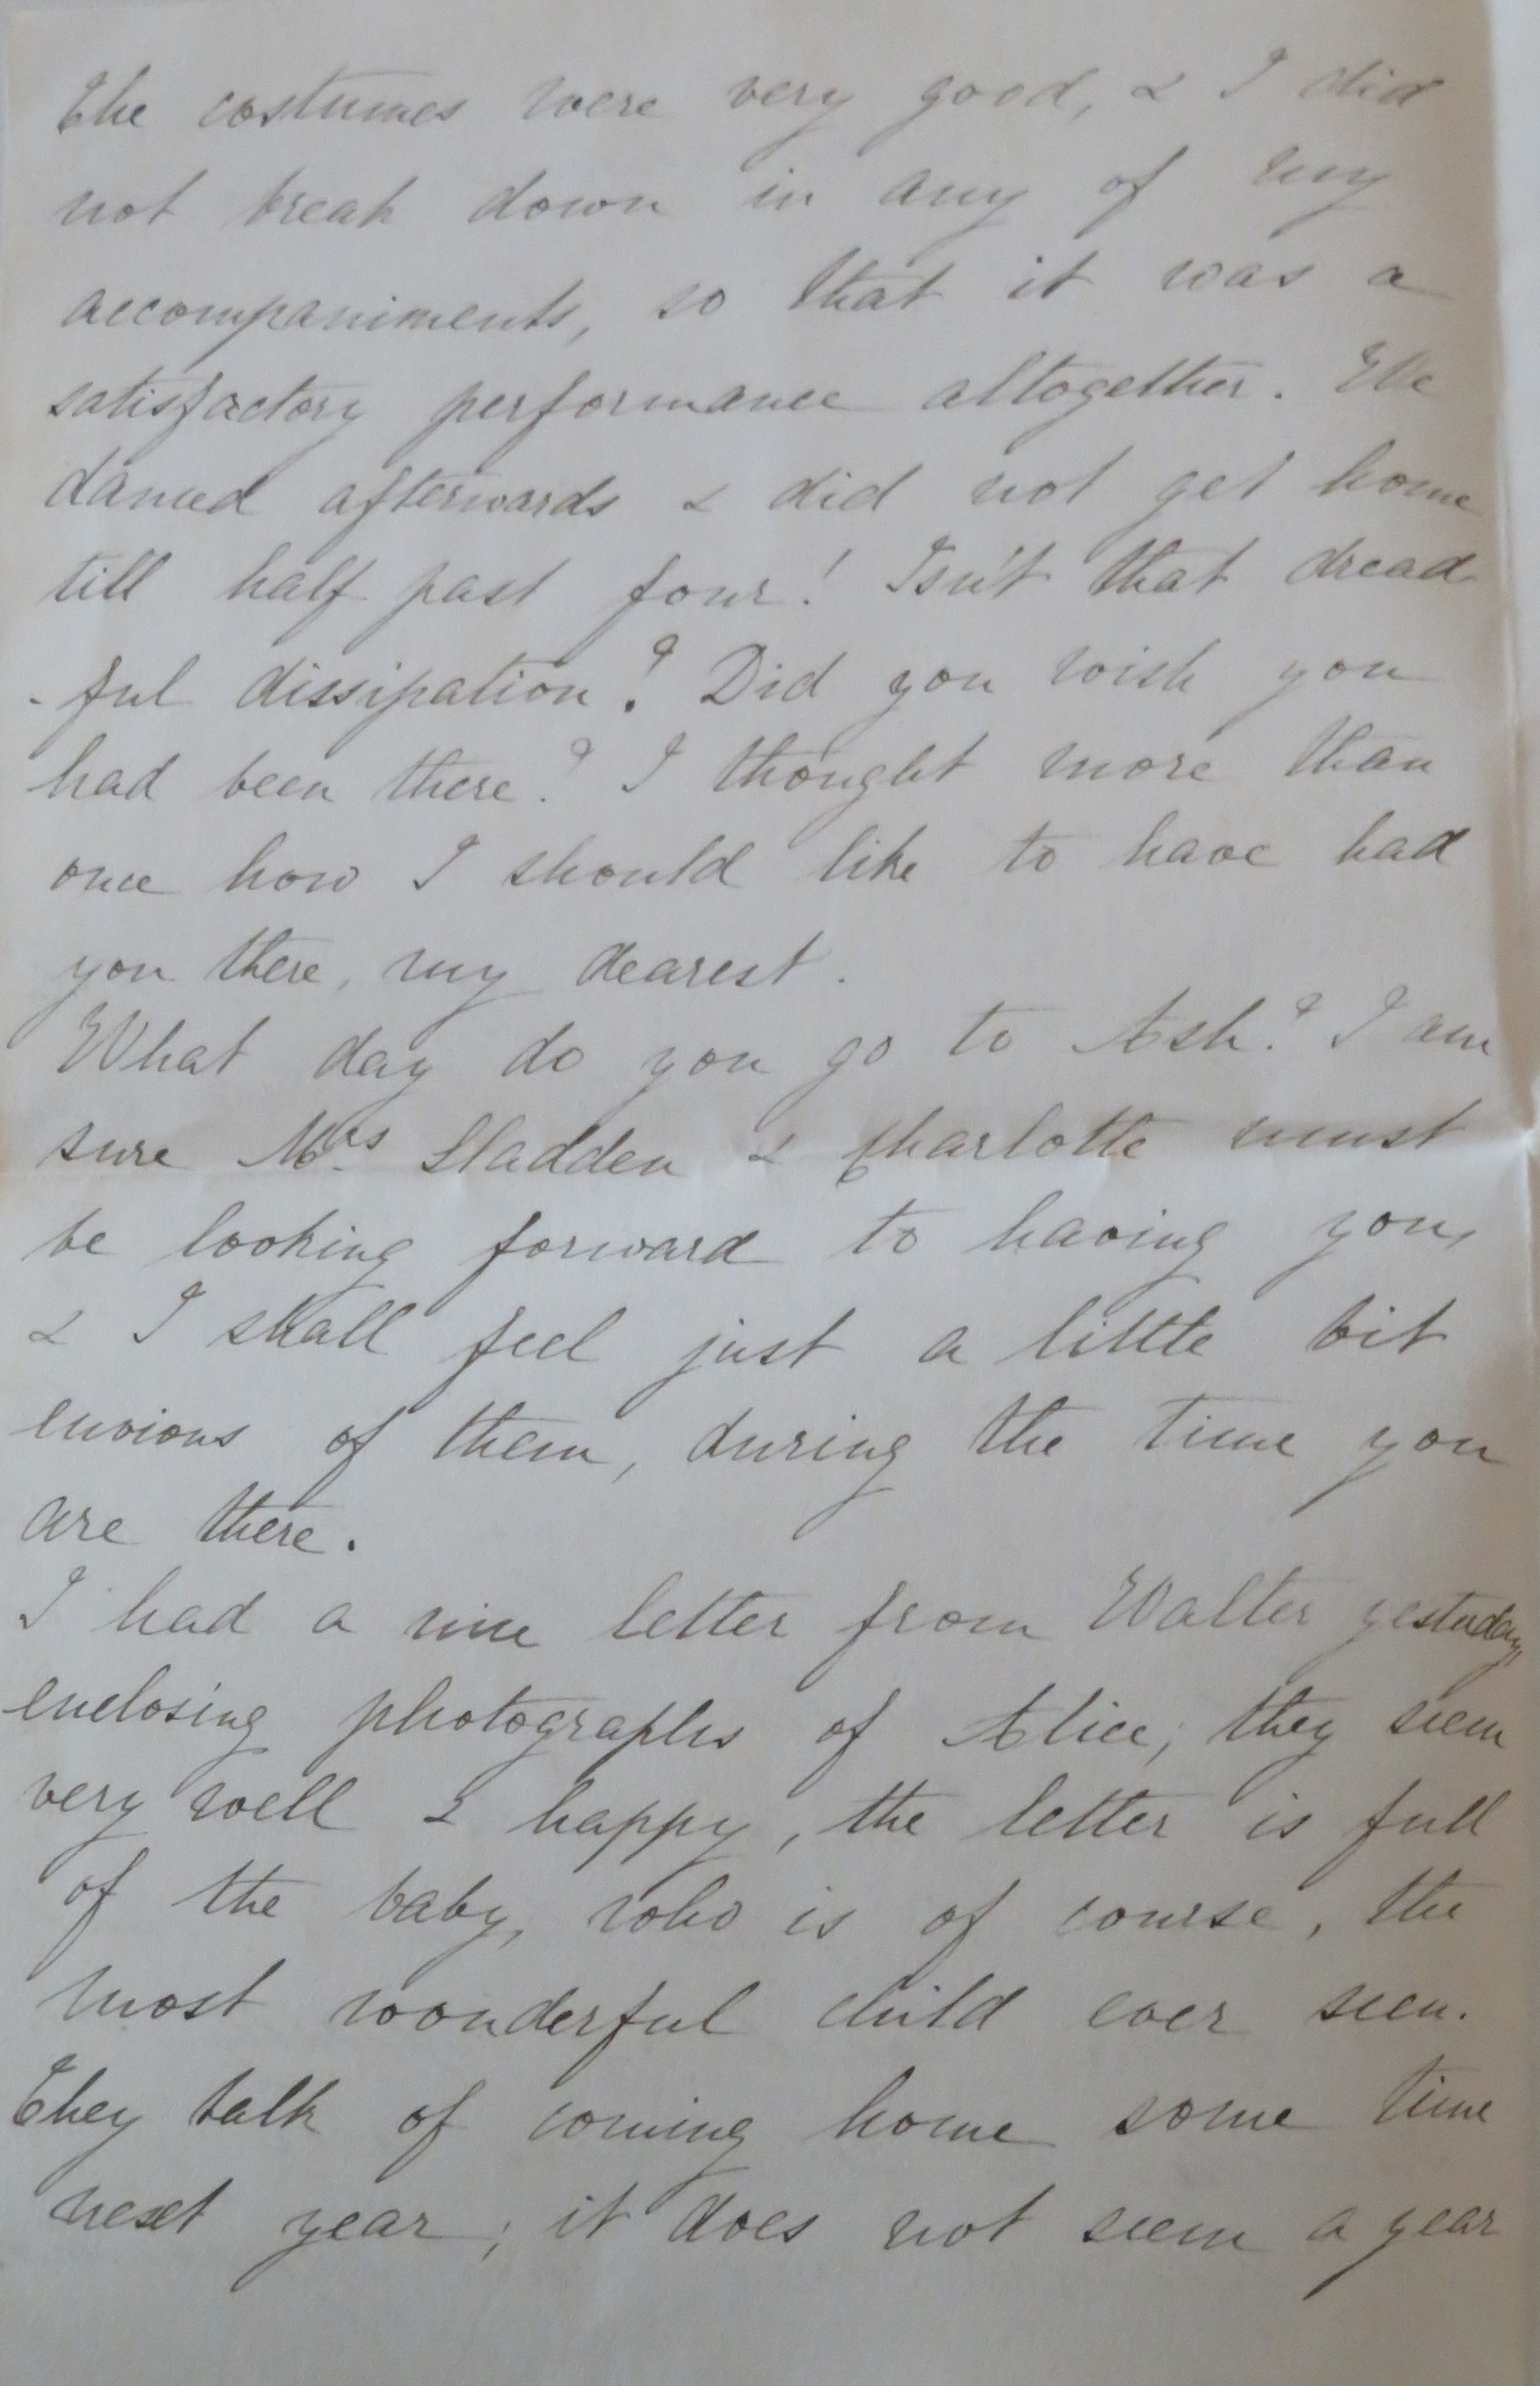 The costumes were very good, & I did
not break down in any of my
accompaniments, so that it was a
satisfactory performance altogether. We
danced afterwards & did not get home
till half past four! Isn't that dread
-ful dissipation? Did you wish you
had been there? I thought more than
once how I should like to have had
you there, my dearest.
What day do you go to Ash? I am
sure Mrs Sladden & Charlotte must
be looking forward to having you,
& I shall feel just a little bit
envious of them, during the time you
are there.
I had a nice letter from Walter yesterday,
enclosing photographs of Alice; they seem
very well & happy, the letter is full
of the baby, who is of course, the
most wonderful child ever seen.
They talk of coming home some time
next year; it does not seem a year